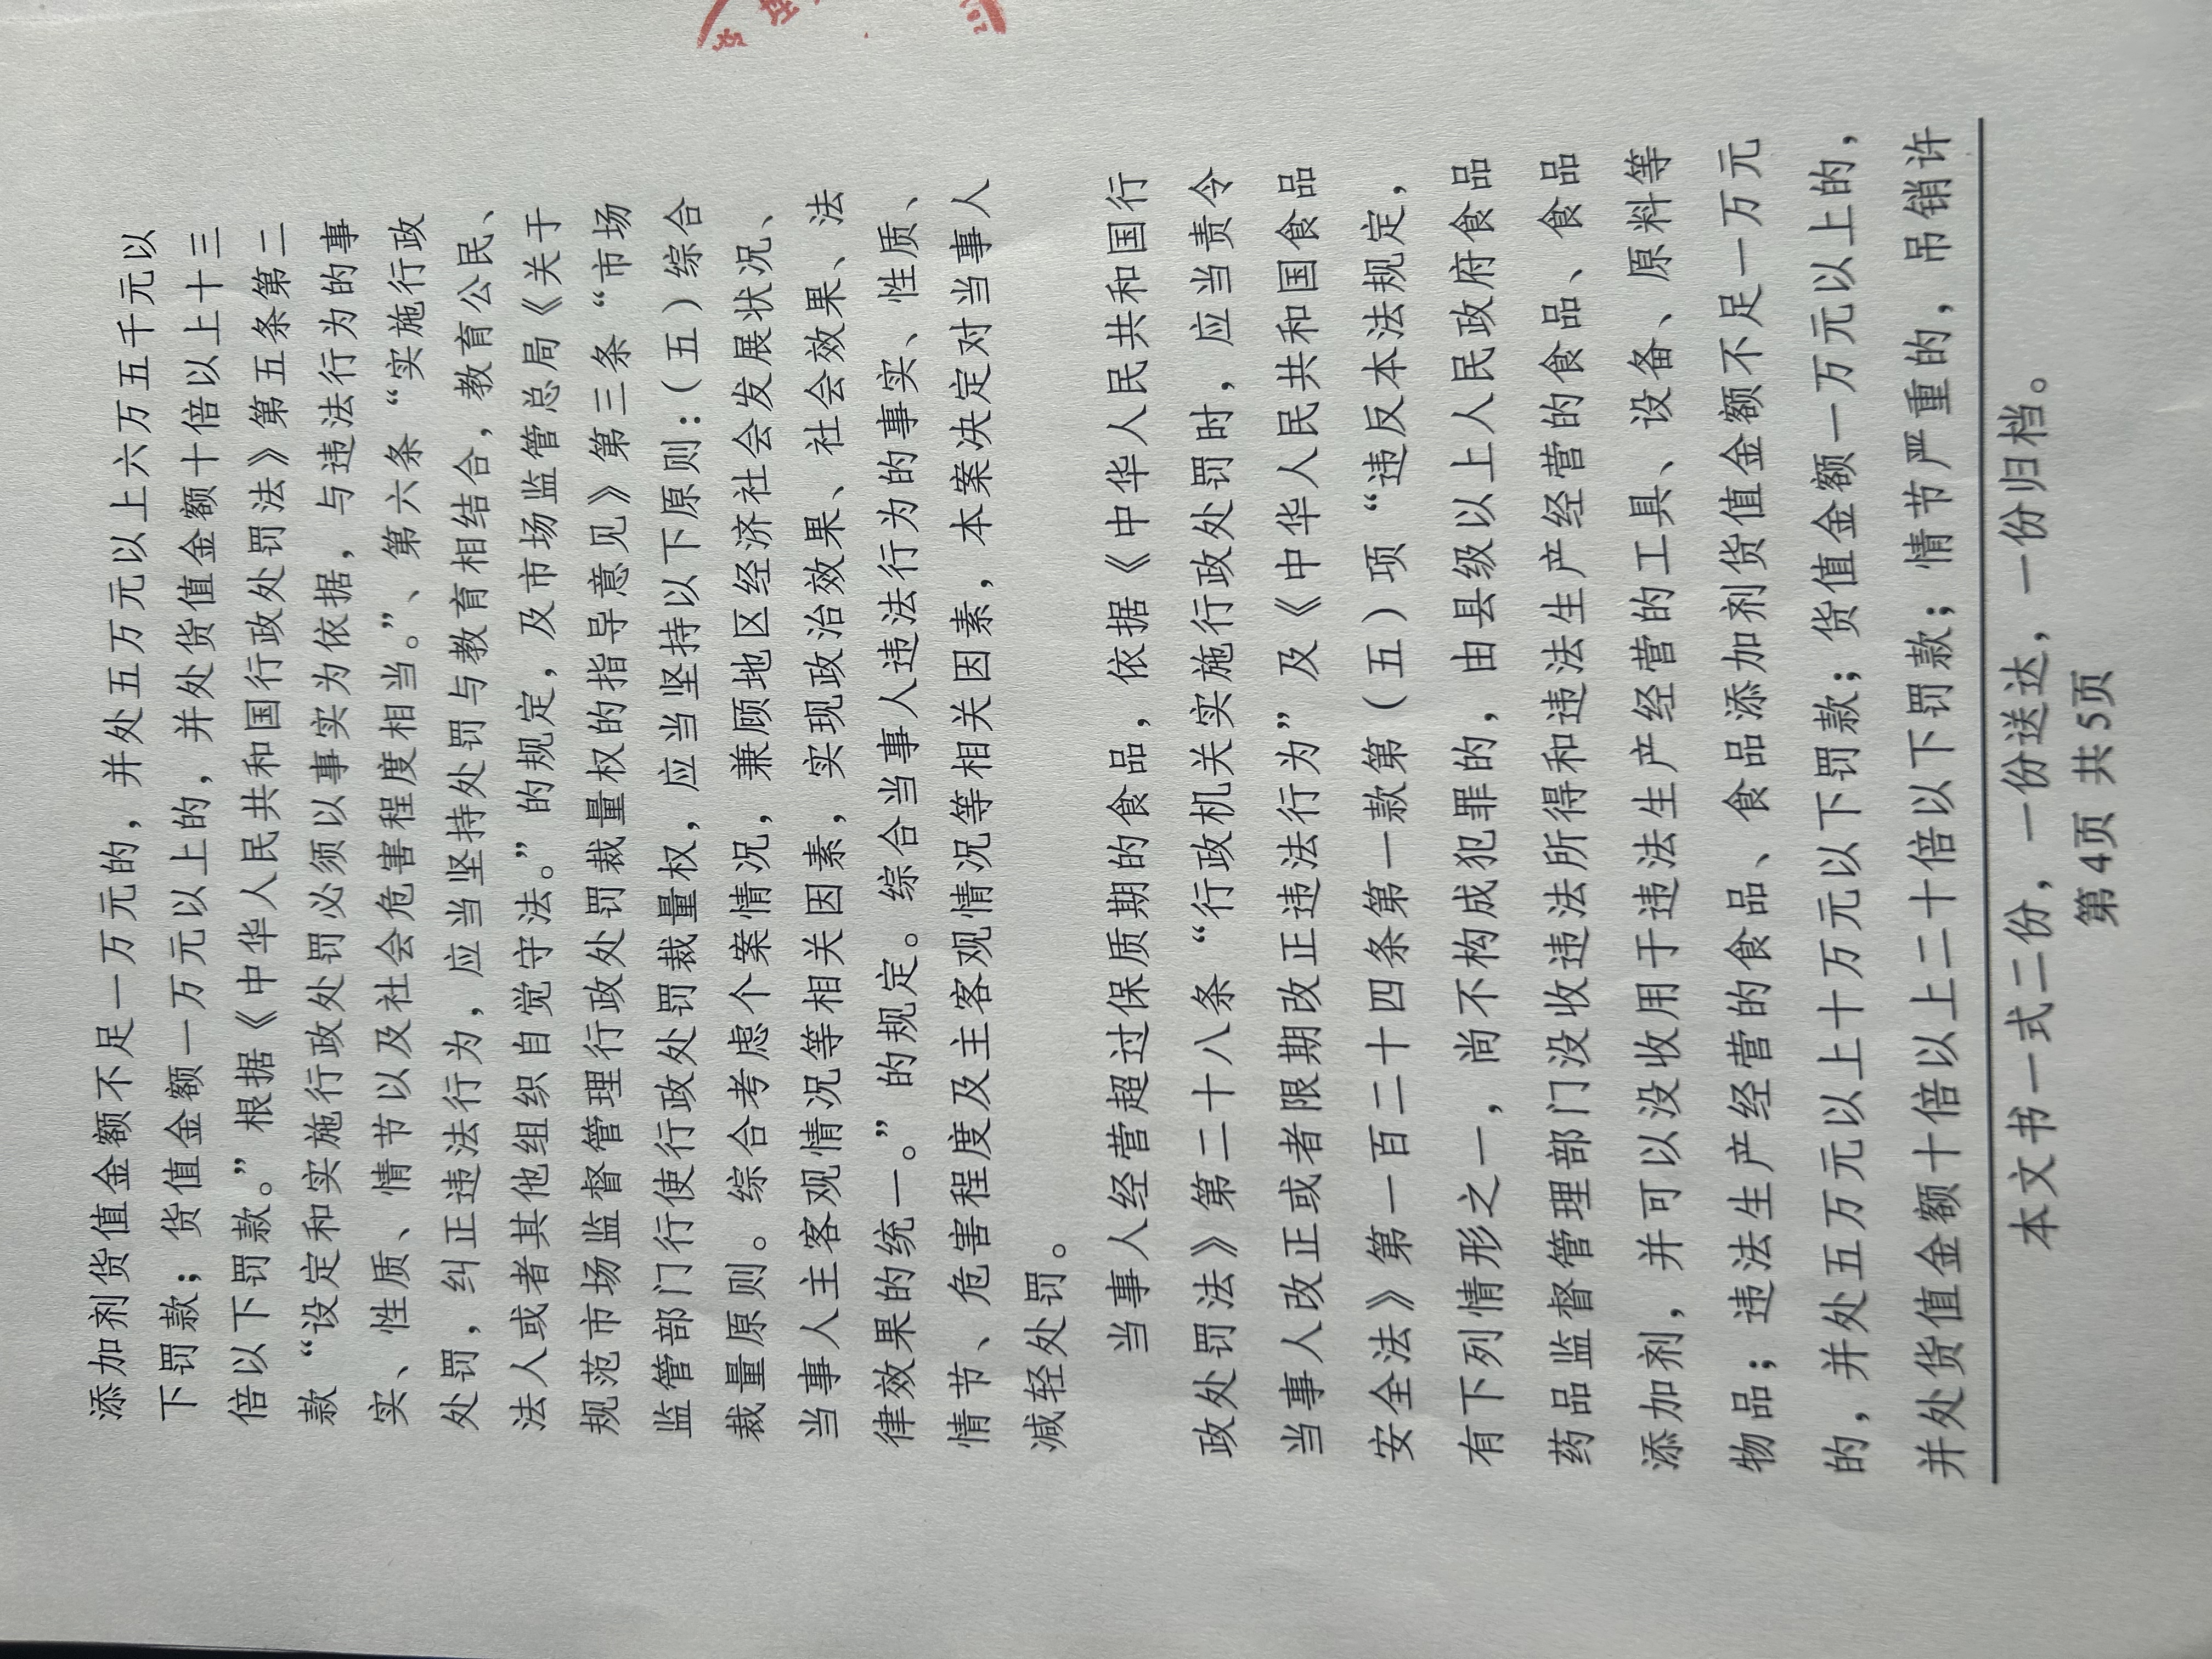 添加剂货值金额不足一万元的，并处五万元以上六万五千元以
下罚款；货值金额一万元以上的，并处货值金额十倍以上十三
倍以下罚款。”根据《中华人民共和国行政处罚法》第五条第二
款“设定和实施行政处罚必须以事实为依据，与违法行为的事
实、性质、情节以及社会危害程度相当。”、第六条“实施行政
处罚，纠正违法行为，应当坚持处罚与教育相结合，教育公民、
法人或者其他组织自觉守法。”的规定，及市场监管总局《关于
规范市场监督管理行政处罚裁量权的指导意见》第三条“市场
监管部门行使行政处罚裁量权，应当坚持以下原则：（五）综合
裁量原则。综合考虑个案情况，兼顾地区经济社会发展状况、
当事人主客观情况等相关因素，实现政治效果、社会效果、法
律效果的统一。”的规定。综合当事人违法行为的事实、性质、
情节、危害程度及主客观情况等相关因素，本案决定对当事人
减轻处罚。
当事人经营超过保质期的食品，依据《中华人民共和国行
政处罚法》第二十八条“行政机关实施行政处罚时，应当责令
当事人改正或者限期改正违法行为”及《中华人民共和国食品
安全法》第一百二十四条第一款第（五）项“违反本法规定，
有下列情形之一，尚不构成犯罪的，由县级以上人民政府食品
药品监督管理部门没收违法所得和违法生产经营的食品、食品
添加剂，并可以没收用于违法生产经营的工具、设备、原料等
物品；违法生产经营的食品、食品添加剂货值金额不足一万元
的，并处五万元以上十万元以下罚款；货值金额一万元以上的，
并处货值金额十倍以上二十倍以下罚款；情节严重的，吊销许
本文书一式二份，一份送达，一份归档。
第4页 共5页